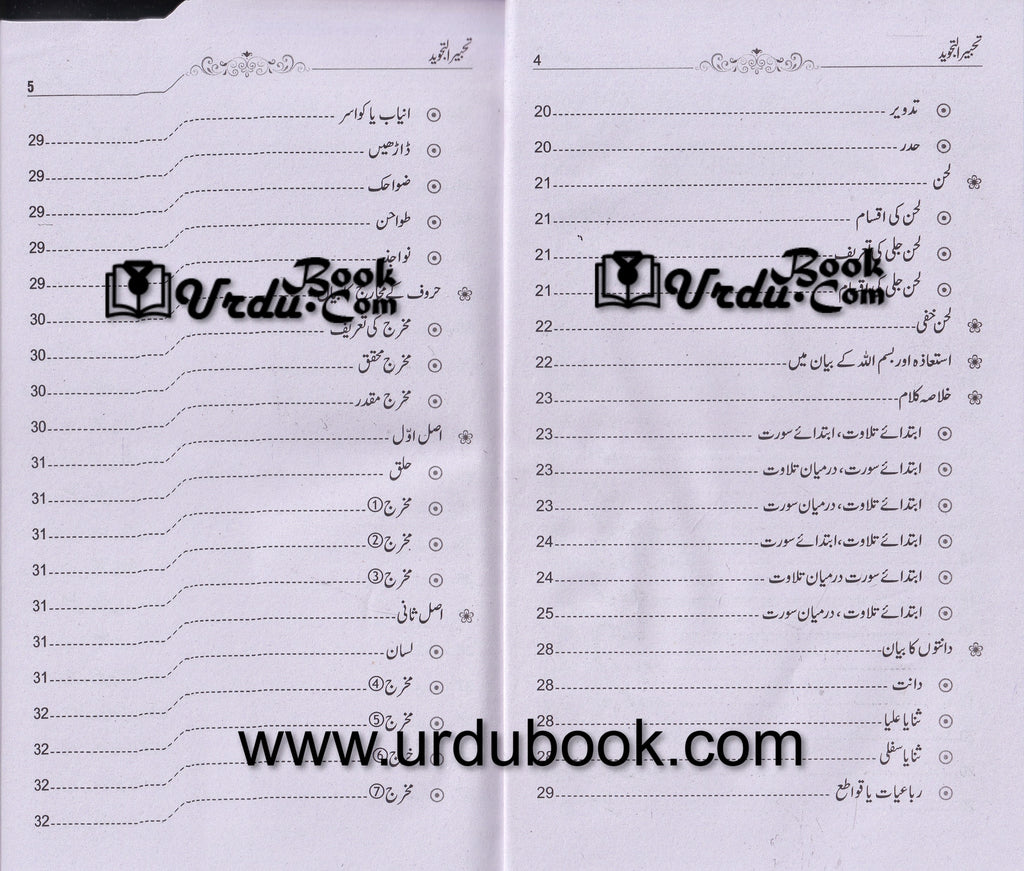 تحبیر التجوید
4
تدویر 20
حدر 20
لحن 21
لحن کی اقسام 21
لحن جلی کی تعریف 21
لحن جلی کی اقسام 21
لحن خفی 22
استعاذہ اور بسم اللہ کے بیان میں 22
خلاصہ کلام 23
ابتدائے تلاوت، ابتدائے سورت 23
ابتدائے سورت، درمیان تلاوت 23
ابتدائے تلاوت، درمیان سورت 23
ابتدائے تلاوت، ابتدائے سورت 24
ابتدائے سورت درمیان تلاوت 24
ابتدائے تلاوت، درمیان سورت 25
دانتوں کا بیان 28
دانت 28
ثنایا علیا 28
ثنایا سفلی 28
رباعیات یا قواطع 29
تحبیر التجوید
5
انیاب یا کواسر 29
ڈاڑھیں 29
ضواحک 29
طواحن 29
نواجذ 29
حروف کے مخارج 30
مخرج کی تعریف 30
مخرج محقق 30
مخرج مقدر 30
اصل اوّل 31
حلق 31
مخرج ① 31
مخرج ② 31
مخرج ③ 31
اصل ثانی 31
لسان 31
مخرج ④ 32
مخرج ⑤ 32
مخرج ⑥ 32
مخرج ⑦ 32
UrduBook.Com
UrduBook.Com
www.urdubook.com